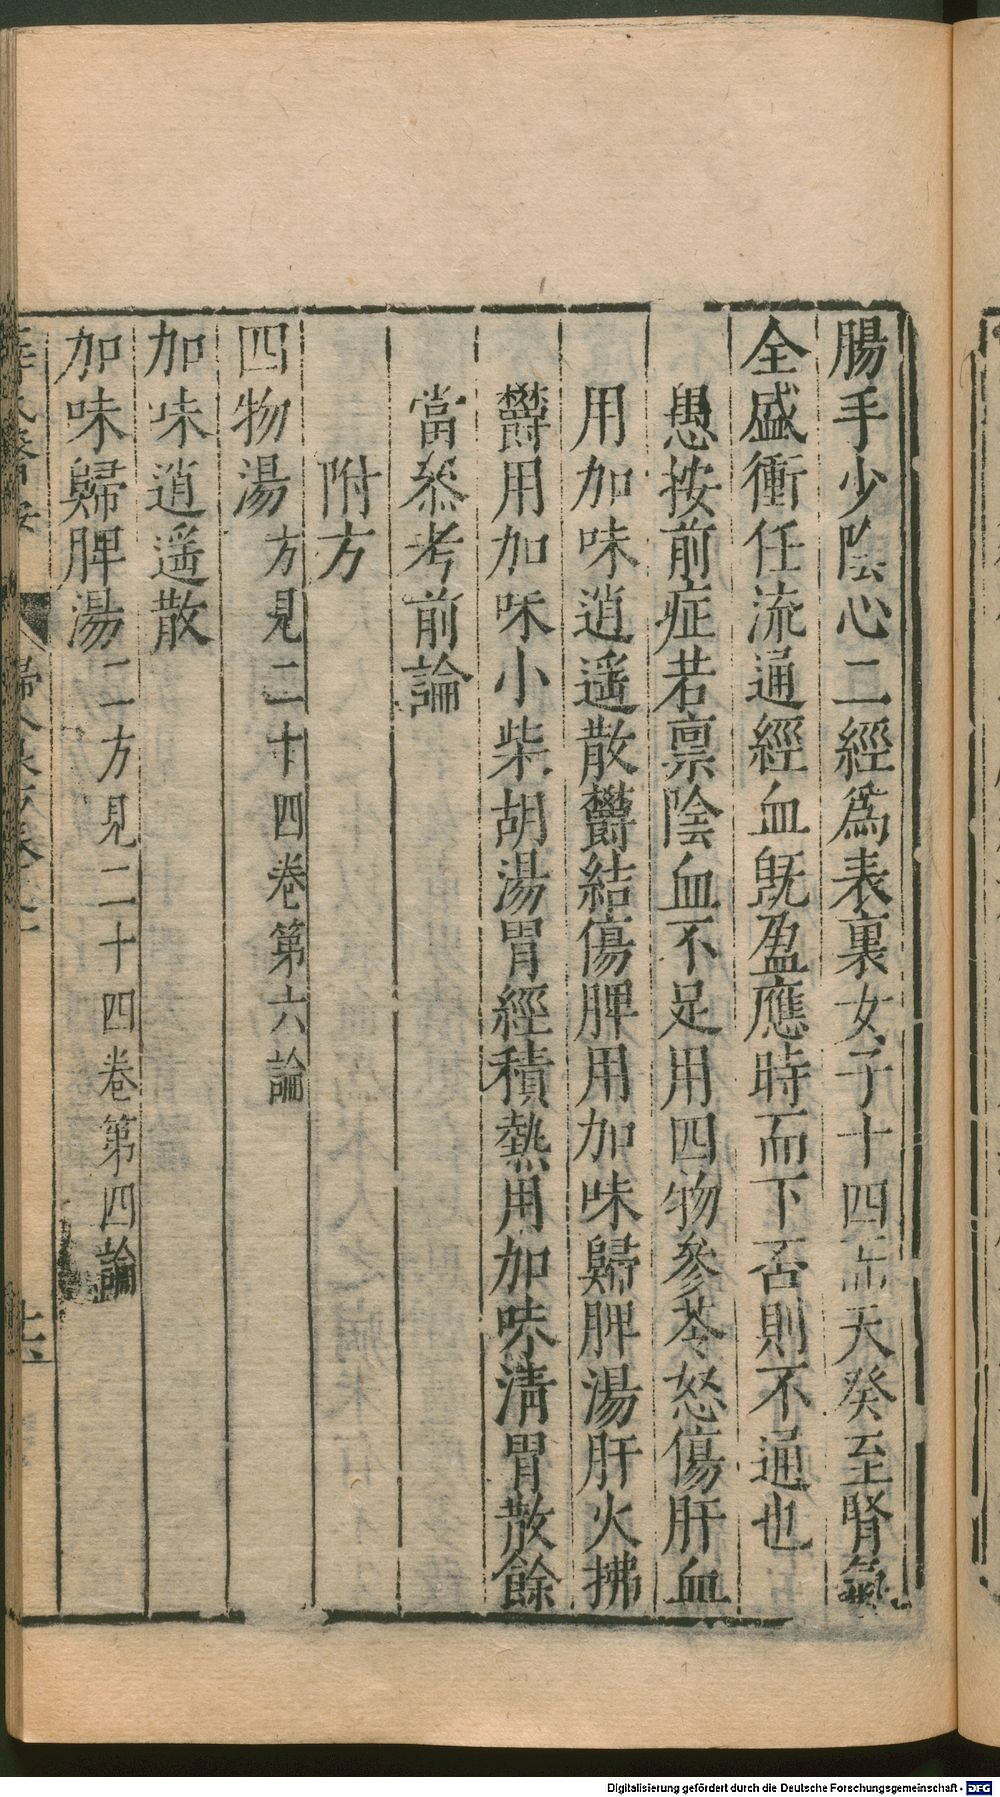 腸手少陰心二經爲表裏女子十四而天癸至腎氣
全盛衝任流通經血既盈應時而下否則不通也
愚按前症若禀陰血不足用四物參苓怒傷肝血
用加味逍遥散欝結傷脾用加味歸脾湯肝火拂
欝用加味小柴胡湯胃經積熱用加味清胃散餘
當叅考前論
附方
四物湯方見二十四卷第六論
加味逍遥散
加味歸脾湯二方見二十四卷第四論
Digitalisierung gefördert durch die Deutsche Forschungsgemeinschaft - DFG